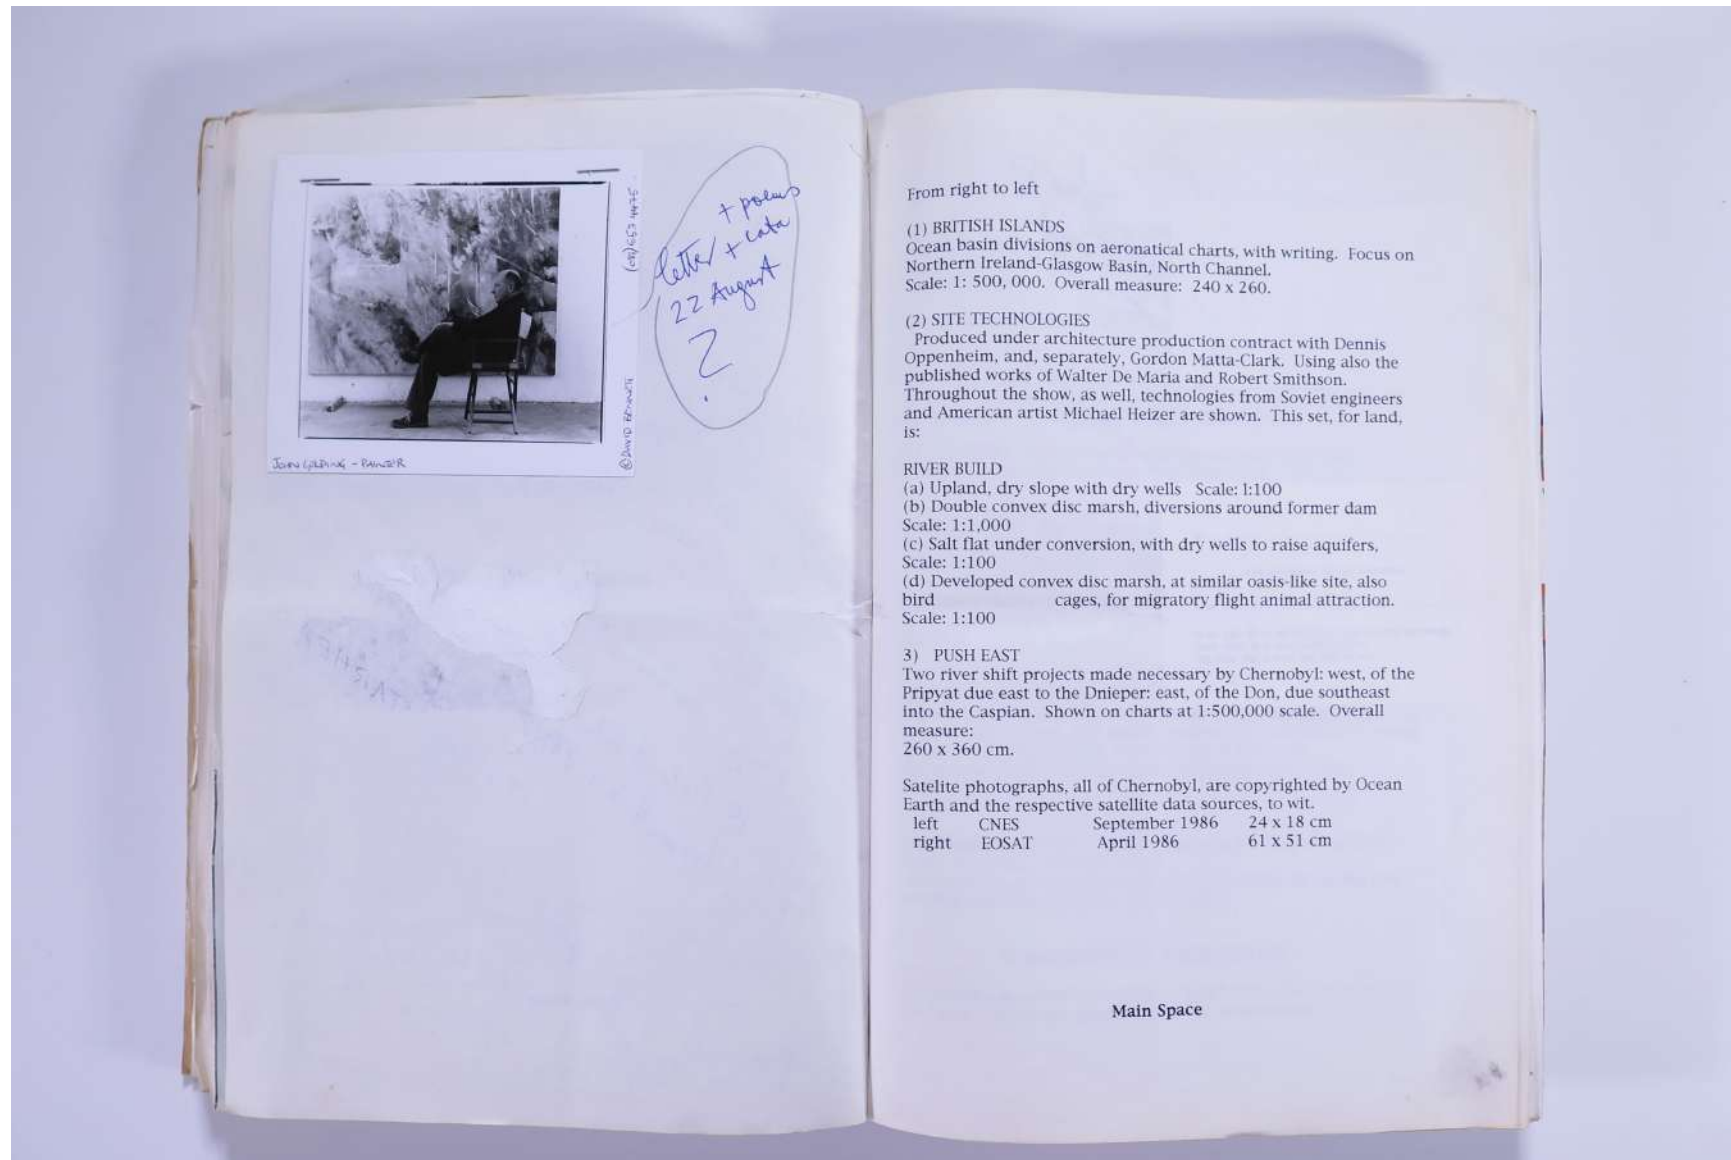 JOHN GOLDING - PAINTER
© DAVID
+ poems
letter + cata
22 August
?
From right to left
(1) BRITISH ISLANDS
Ocean basin divisions on aeronatical charts, with writing. Focus on
Northern Ireland-Glasgow Basin, North Channel.
Scale: 1: 500, 000. Overall measure: 240 x 260.
(2) SITE TECHNOLOGIES
Produced under architecture production contract with Dennis
Oppenheim, and, separately, Gordon Matta-Clark. Using also the
published works of Walter De Maria and Robert Smithson.
Throughout the show, as well, technologies from Soviet engineers
and American artist Michael Heizer are shown. This set, for land,
is:
RIVER BUILD
(a) Upland, dry slope with dry wells Scale: 1:100
(b) Double convex disc marsh, diversions around former dam
Scale: 1:1,000
(c) Salt flat under conversion, with dry wells to raise aquifers,
Scale: 1:100
(d) Developed convex disc marsh, at similar oasis-like site, also
bird cages, for migratory flight animal attraction.
Scale: 1:100
3) PUSH EAST
Two river shift projects made necessary by Chernobyl: west, of the
Pripyat due east to the Dnieper: east, of the Don, due southeast
into the Caspian. Shown on charts at 1:500,000 scale. Overall
measure:
260 x 360 cm.
Satelite photographs, all of Chernobyl, are copyrighted by Ocean
Earth and the respective satellite data sources, to wit.
left CNES September 1986 24 x 18 cm
right EOSAT April 1986 61 x 51 cm
Main Space